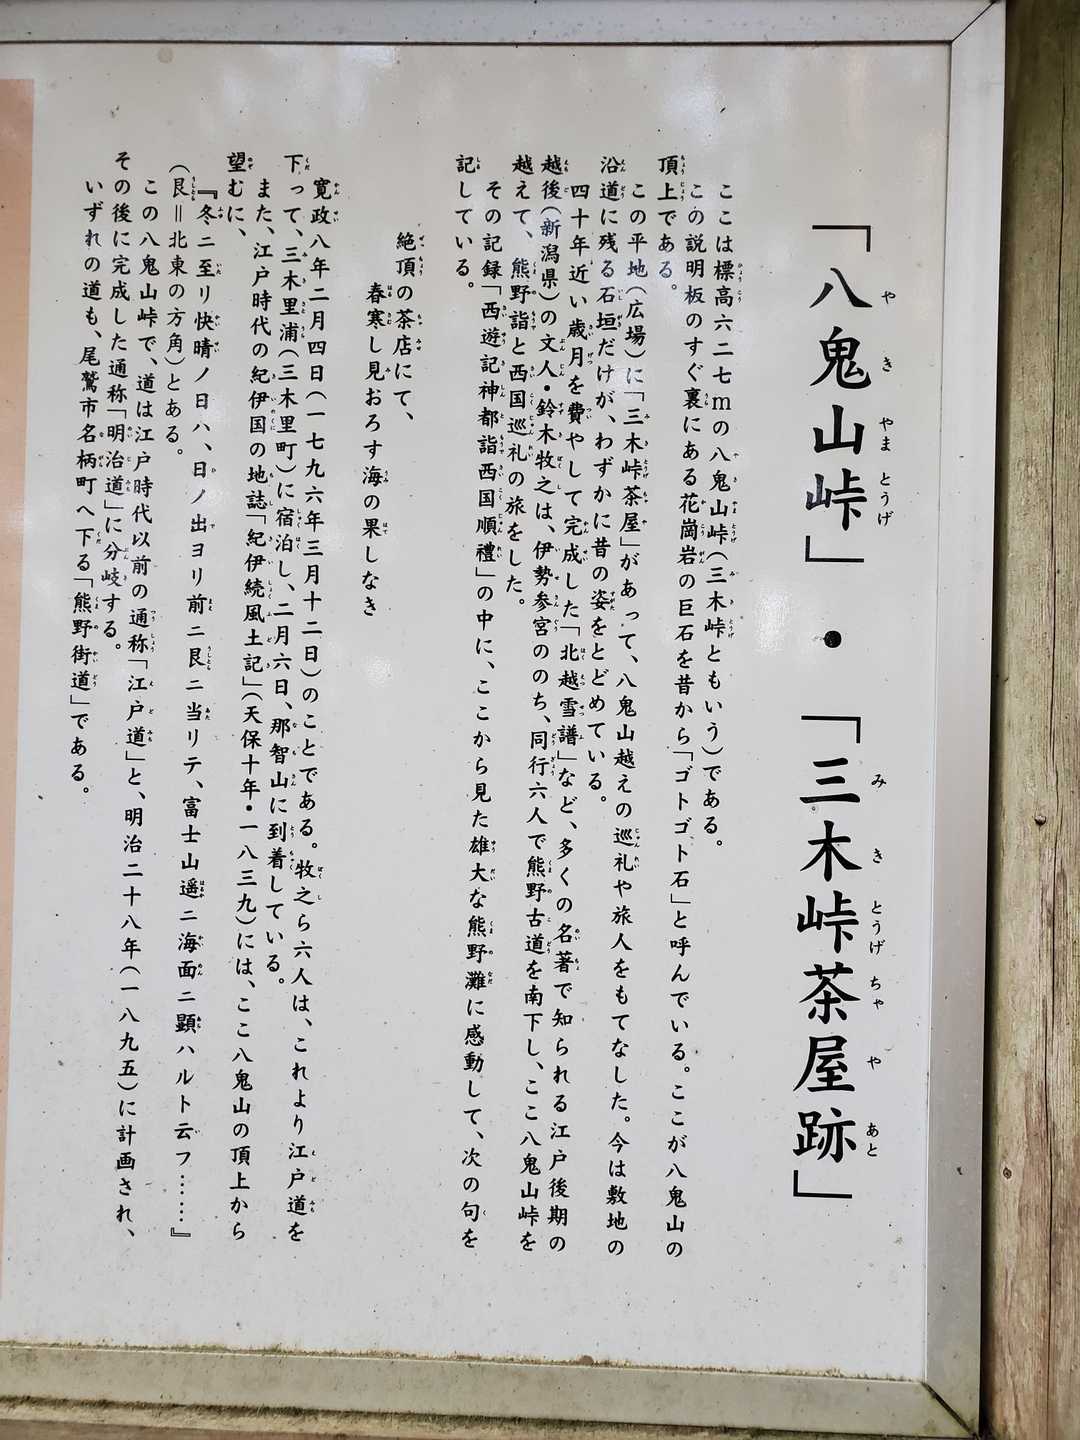 「八鬼山峠」・「三木峠茶屋跡」
ここは標高六二七mの八鬼山峠(三木峠ともいう)である。
この説明板のすぐ裏にある花崗岩の巨石を昔から「ゴトゴト石」と呼んでいる。ここが八鬼山の
頂上である。
この平地(広場)に「三木峠茶屋」があって、八鬼山越えの巡礼や旅人をもてなした。今は敷地の
沿道に残る石垣だけが、わずかに昔の姿をとどめている。
四十年近い歳月を費やして完成した「北越雪譜」など、多くの名著で知られる江戸後期の
越後(新潟県)の文人・鈴木牧之は、伊勢参宮ののち、同行六人で熊野古道を南下し、ここ八鬼山峠を
越えて、熊野詣と西国巡礼の旅をした。
その記録「西遊記神都詣西国順禮」の中に、ここから見た雄大な熊野灘に感動して、次の句を
記している。
絶頂の茶店にて、
春寒し見おろす海の果しなき
寛政八年二月四日(一七九六年三月十二日)のことである。牧之ら六人は、これより江戸道を
下って、三木里浦(三木里町)に宿泊し、二月六日、那智山に到着している。
また、江戸時代の紀伊国の地誌「紀伊続風土記」(天保十年・一八三九)には、ここ八鬼山の頂上から
望むに、
『冬ニ至リ快晴ノ日ハ、日ノ出ヨリ前ニ艮ニ当リテ、富士山遥ニ海面ニ顕ハルト云フ……』
(艮＝北東の方角)とある。
この八鬼山峠で、道は江戸時代以前の通称「江戸道」と、明治二十八年(一八九五)に計画され、
その後に完成した通称「明治道」に分岐する。
いずれの道も、尾鷲市名柄町へ下る「熊野街道」である。